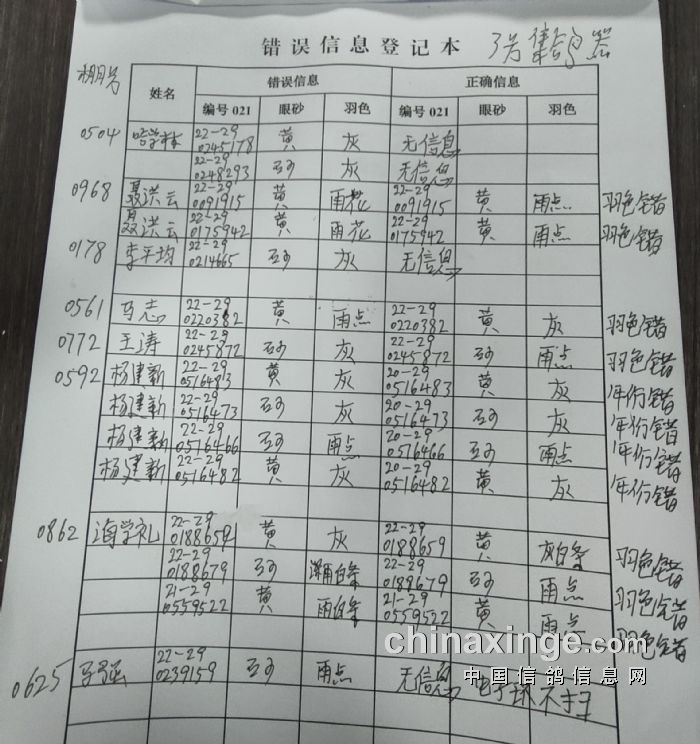 错误信息登记本 3号集鸽器
棚号
姓名 错误信息 正确信息
编号021 眼砂 羽色 编号021 眼砂 羽色
0504 学林 22-29 0245178 黄 灰 无信息
22-29 0248293 砂 灰 无信息
0968 聂洪云 22-29 0091915 黄 雨花 22-29 0091915 黄 雨点 羽色错
聂洪云 22-29 0175942 黄 雨花 22-29 0175942 黄 雨点 羽色错
0178 李平均 22-29 0214665 砂 灰 无信息
0561 马志 22-29 0220382 黄 雨点 22-29 0220382 黄 灰 羽色错
0772 王涛 22-29 0245872 砂 灰 22-29 0245872 砂 雨点 羽色错
0592 杨建新 22-29 0516483 黄 灰 20-29 0516483 黄 灰 年份错
杨建新 22-29 0516473 砂 灰 20-29 0516473 砂 灰 年份错
杨建新 22-29 0516466 砂 雨点 20-29 0516466 砂 雨点 年份错
杨建新 22-29 0516482 黄 灰 20-29 0516482 黄 灰 年份错
0862 海学礼 22-29 0188659 黄 灰 22-29 0188659 黄 灰白条 羽色错
22-29 0188679 砂 雨白条 22-29 0188679 砂 雨点 羽色错
21-29 0559522 黄 雨白条 21-29 0559522 黄 雨点 羽色错
chinaxinge.com
中国信鸽信息网
0625 马 22-29 0239159 砂 雨点 无信息 电子环不扫